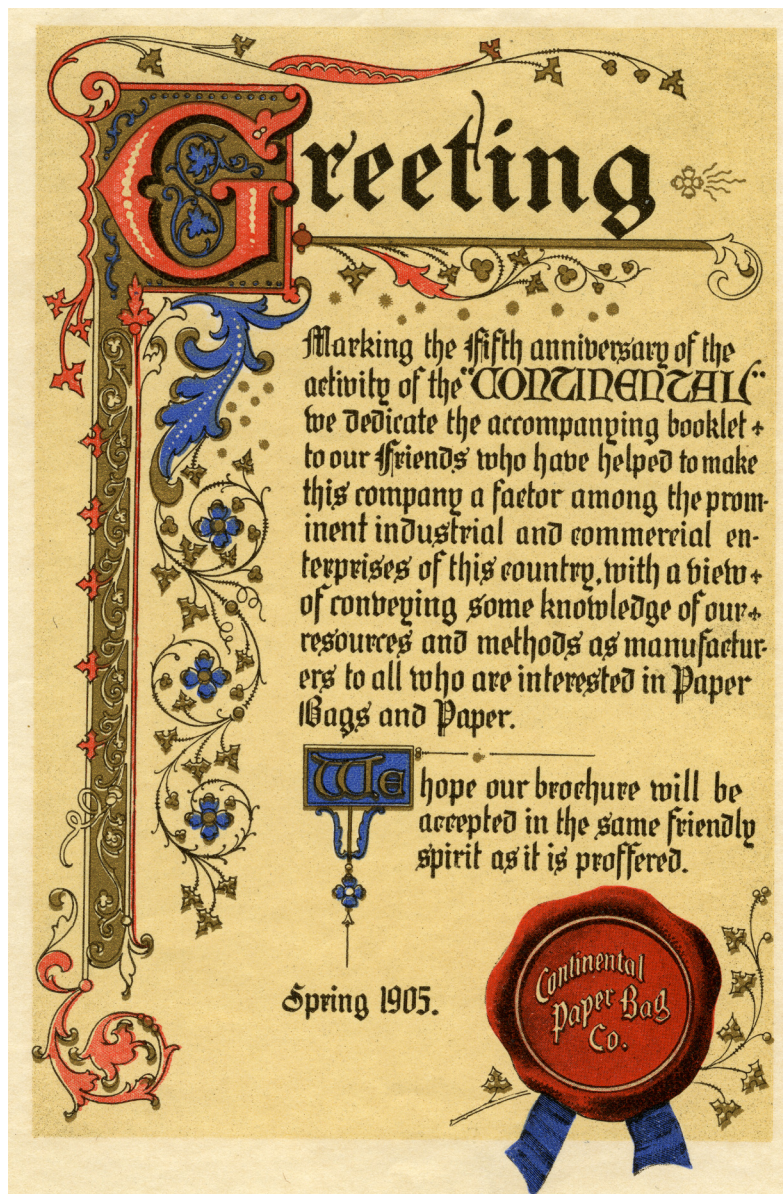 Greeting
Marking the Fifth anniversary of the
activity of the "CONTINENTAL"
we dedicate the accompanying booklet
to our Friends who have helped to make
this company a factor among the prom-
inent industrial and commercial en-
terprises of this country, with a view
of conveying some knowledge of our
resources and methods as manufactur-
ers to all who are interested in Paper
Bags and Paper.
We hope our brochure will be
accepted in the same friendly
spirit as it is proffered.
Spring 1905.
Continental
Paper Bag
Co.